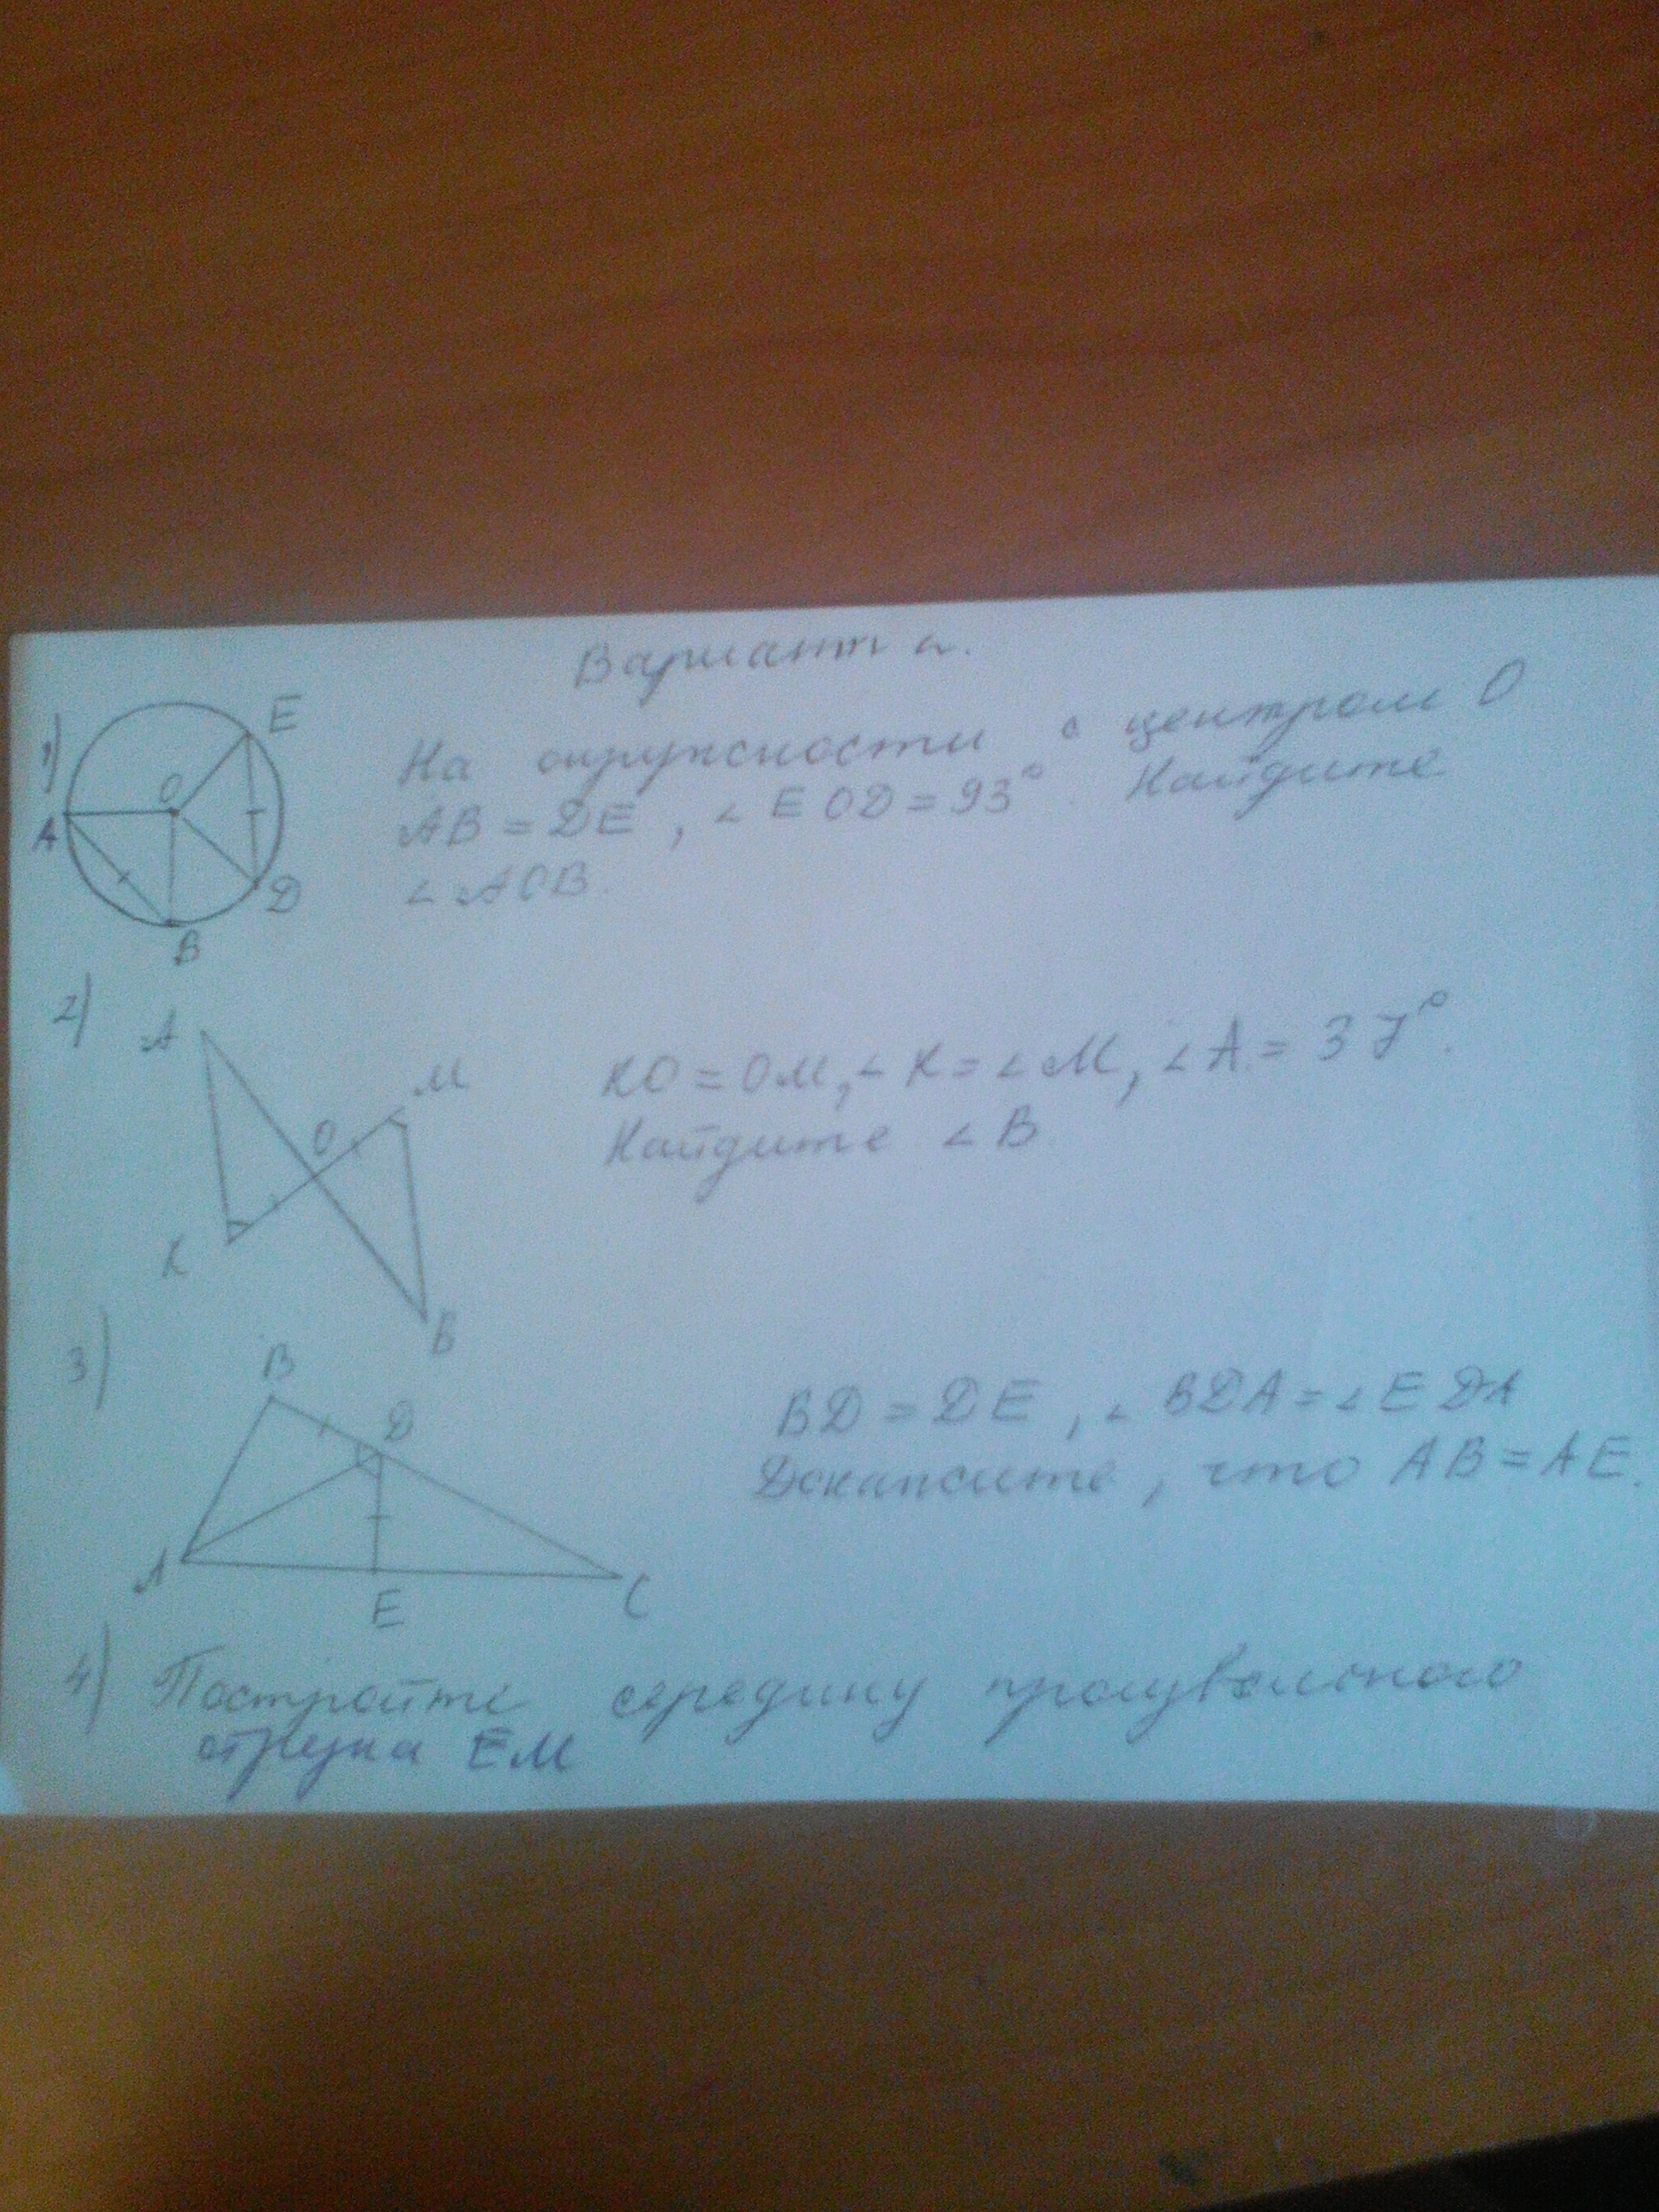 Вариант 2.
1)
E
O
A
D
B
На окружности с центром О
AB = DE, ∠EOD = 93°. Найдите
∠AOB.
2)
A
M
O
K
B
KO = OM, ∠K = ∠M, ∠A = 37°.
Найдите ∠B
3)
B
D
A
E
C
BD = DE, ∠BDA = ∠EDA
Докажите, что AB = AE.
4) Постройте середину произвольного
отрезка EM